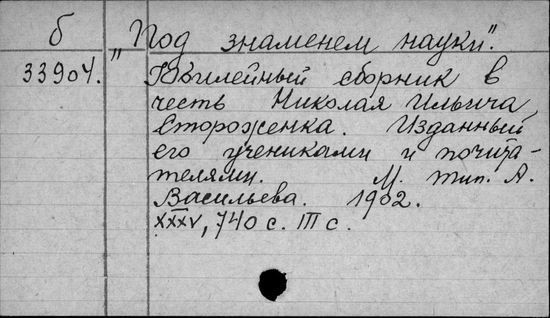 б "Под знаменем науки".
33904. Юбилейный сборник в
честь Николая Ильича
Стороженка. Изданный
его учениками и почита-
телями. М. тип. А.
Васильева. 1902.
XXXV, 740 с. III с.